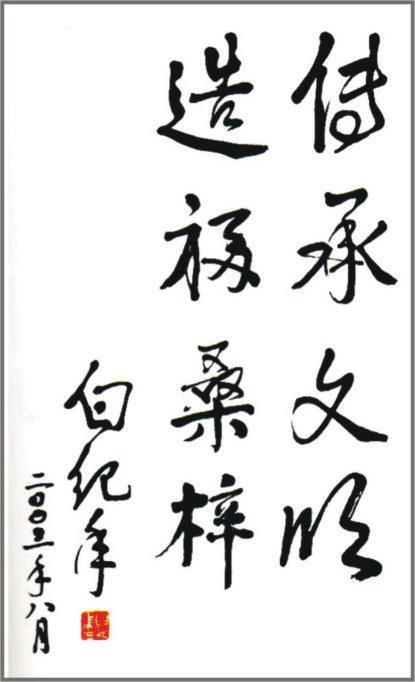 传承文明
造福桑梓
白纪年
二〇〇三年八月